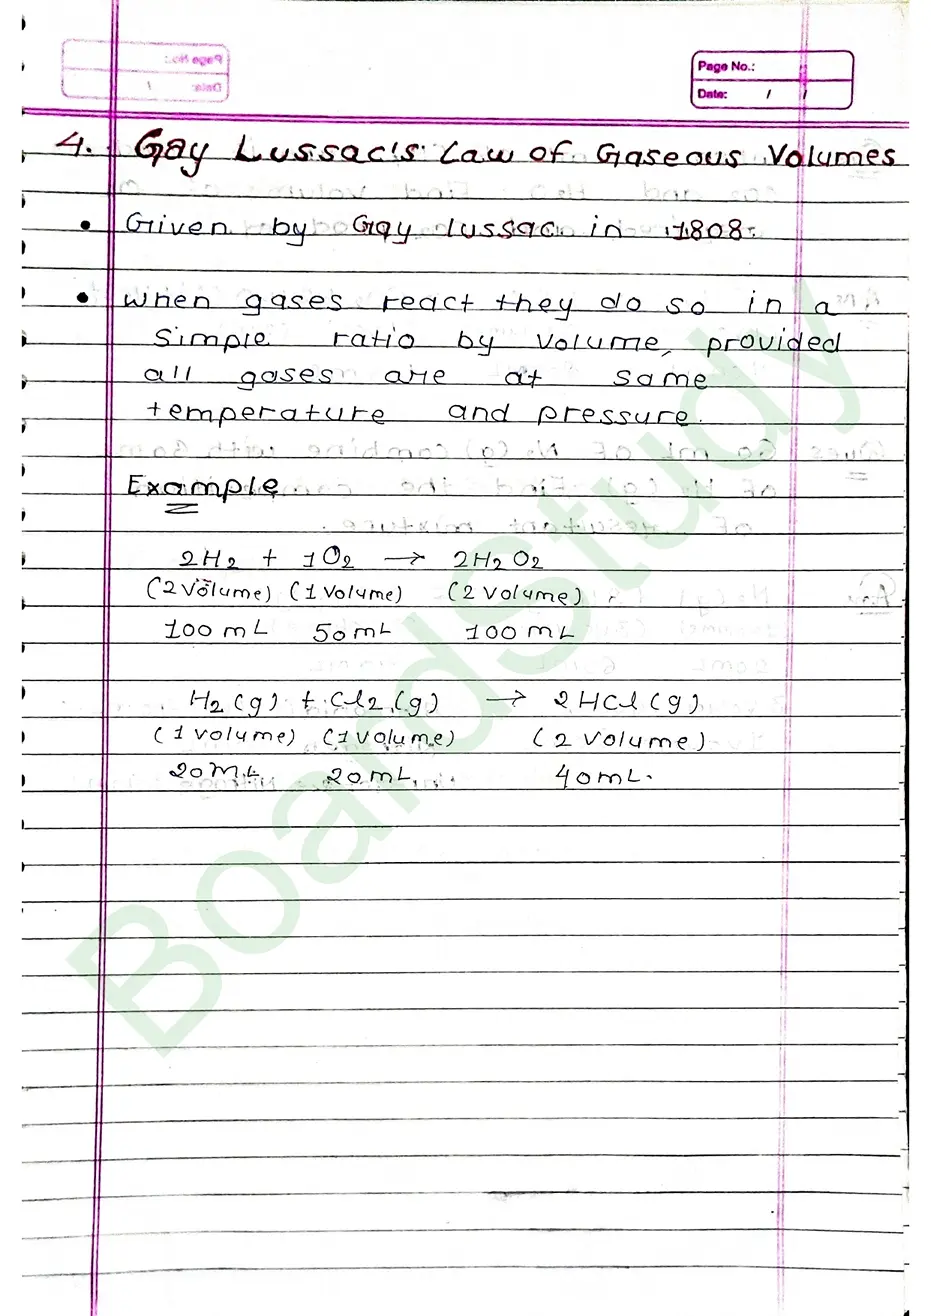 Page No.:
Date: / /
4. Gay Lussac's Law of Gaseous Volumes
• Given by Gay lussac in 1808.
• When gases react they do so in a
simple ratio by volume, provided
all gases are at same
temperature and pressure.
Example
2H2 + 1O2 → 2H2O2
(2 volume) (1 volume) (2 volume)
100 mL 50 mL 100 mL
H2(g) + Cl2(g) → 2HCl(g)
(1 volume) (1 volume) (2 volume)
20 mL 20 mL 40 mL.
BoardStudy